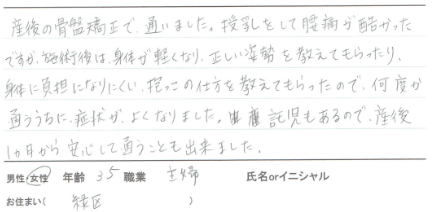 産後の骨盤矯正で、通いました。授乳をして腰痛が酷かった
ですが、施術後は、身体が軽くなり、正しい姿勢を教えてもらったり、
身体に負担になりにくい、抱っこの仕方を教えてもらったので、何度か
通ううちに、症状が、よくなりました。託児もあるので、産後
1ヵ月から安心して通うことも出来ました。
男性・女性 年齢 35 職業 主婦 氏名orイニシャル
お住まい( 緑区 )